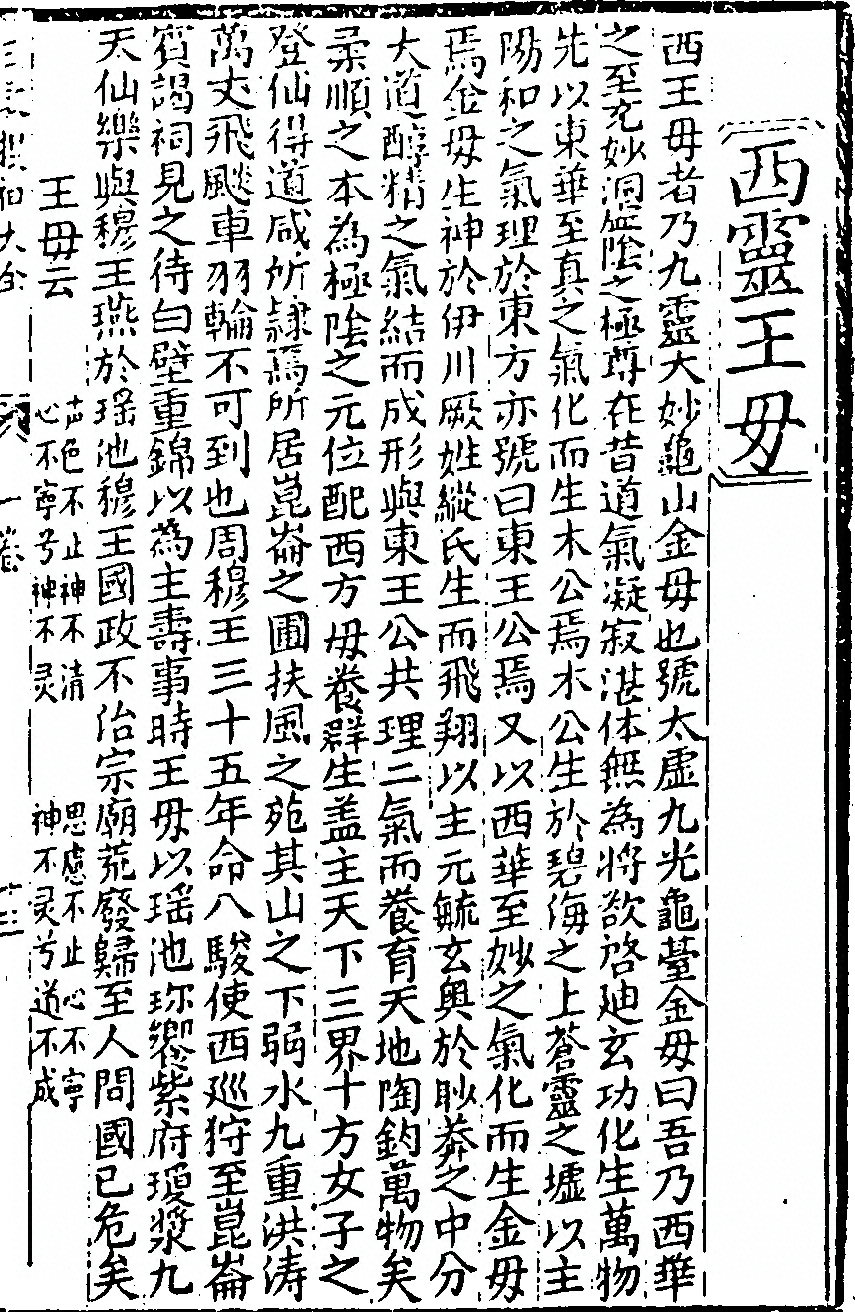 西靈王母
西王母者乃九靈大妙龜山金母也號太虛九光龜臺金母曰吾乃西華
之至玄妙洞陰之極尊在昔道氣凝寂湛体無為將欲啓迪玄功化生萬物
先以東華至真之氣化而生木公焉木公生於碧海之上蒼靈之墟以主
陽和之氣理於東方亦號曰東王公焉又以西華至妙之氣化而生金母
焉金母生神於伊川厥姓緱氏生而飛翔以主元毓玄奥於眇莽之中分
大道醇精之氣結而成形與東王公共理二氣而養育天地陶鈞萬物矣
柔順之本為極陰之元位配西方母養群生盖主天下三界十方女子之
登仙得道咸所隷焉所居崑崙之圃扶風之苑其山之下弱水九重洪涛
萬丈飛飈車羽輪不可到也周穆王三十五年命八駿使西廵狩至崑崙
賓謁祠見之待白璧重錦以為主壽事時王母以瑶池珎饗紫府瓊漿九
天仙樂與穆王燕於瑶池穆王國政不治宗廟荒廢歸至人問國已危矣
王母云
声色不止神不清
心不寧兮神不灵
思慮不止心不寧
神不灵兮道不成
一卷
十三